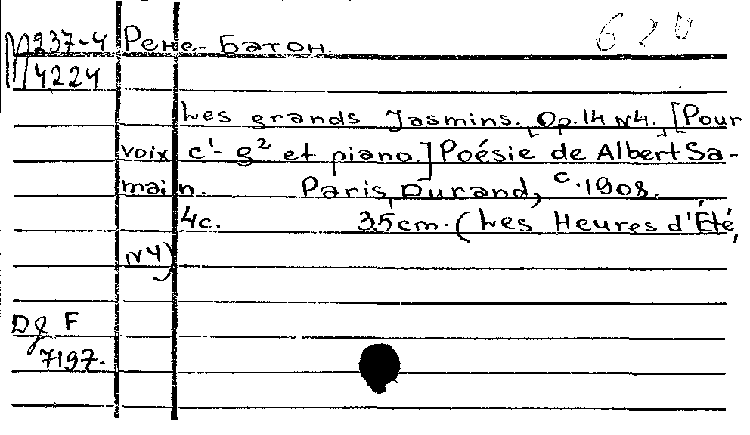 М237-4 Рене-Батон. 620
4224
Les grands Jasmins. Op.14 N4. [Pour
voix c'-g² et piano.] Poésie de Albert Sa-
main. Paris, Durand, c.1908.
4c. 35cm. (Les Heures d'Été,
N4)
Dg F
7197.